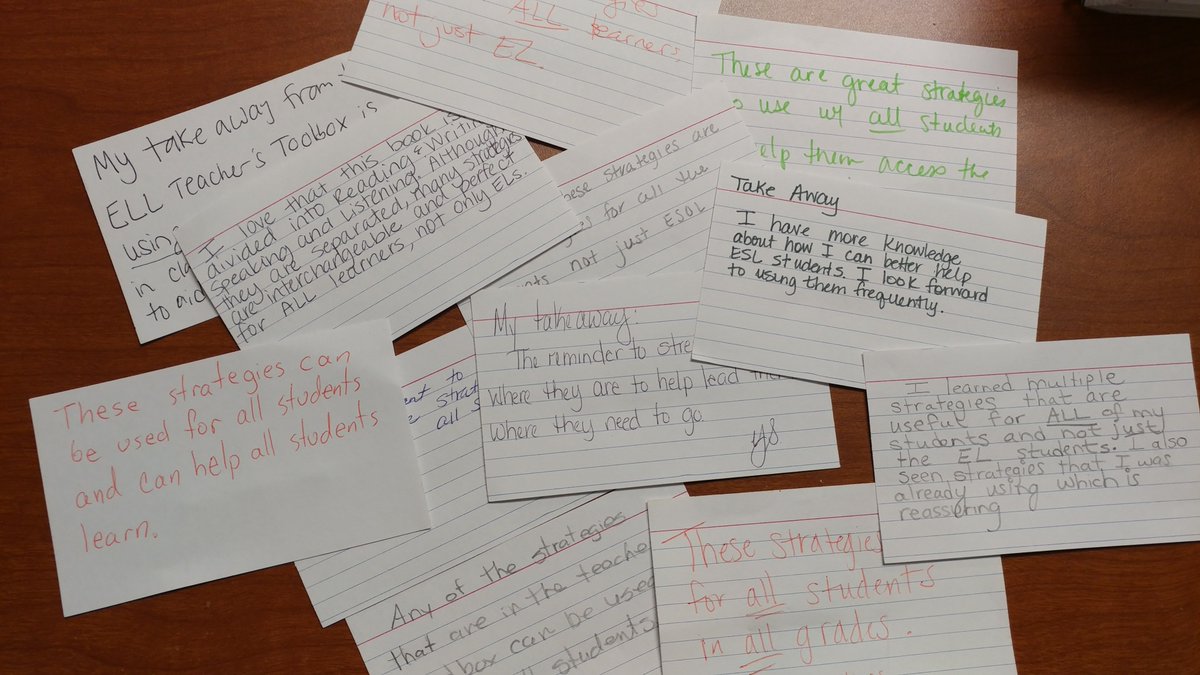 ALL
not just EL.
learners,
These are great strategies
use w/ all students
help them access the
My take away from
ELL Teacher's Toolbox is
using
in
to aid
I love that this book is
divided into Reading & Writing
Speaking and Listening. Although
they are separated, many strategies
are interchangeable and perfect
for ALL learners, not only ELs.
these strategies are
for all the
not just ESOL
Take Away
I have more knowledge
about how I can better help
ESL students. I look forward
to using them frequently.
My takeaway:
The reminder to
where they are to help lead
where they need to go.
These strategies can
be used for all students
and can help all students
learn.
to
all
I learned multiple
strategies that are
useful for ALL of my
students and not just
the EL students. I also
seen strategies that I was
already using which is
reassuring
Any of the strategies
that are in the teacher
can be used
students
These strategies
for all students
in all grades.